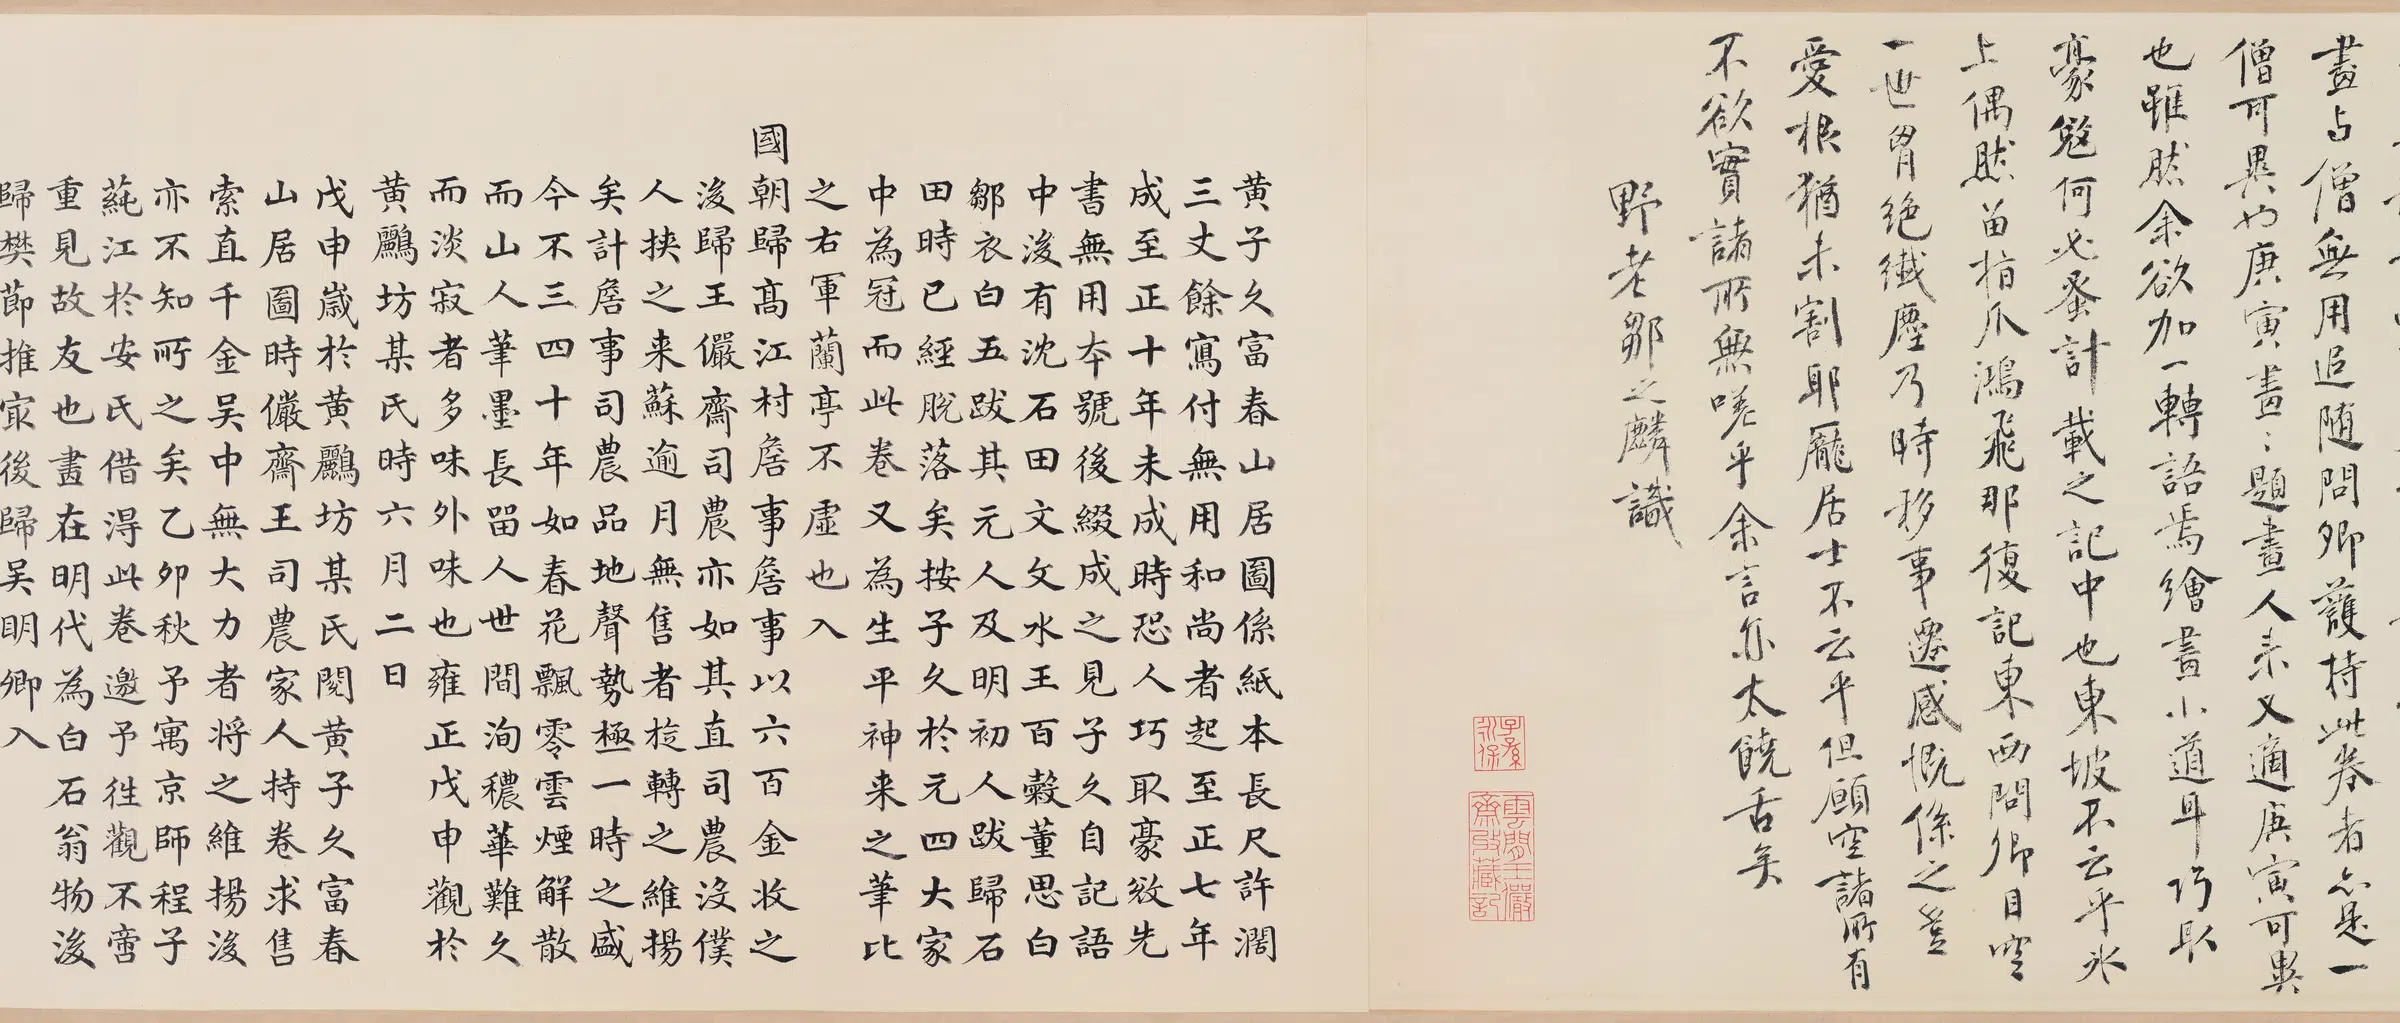 畫占僧無用追随問卿護持此卷者亦是一
僧可異也庚寅畫〻題畫人来又適庚寅可異
也雖然余欲加一轉語焉繪畫小道耳巧取
豪敓何必蚤計載之記中也東坡不云乎氷
上偶然留指爪鴻飛那復記東西問卿目空
一世胷絶纎塵乃時移事遷感慨係之豈
愛根猶未割耶龐居士不云乎但願空諸所有
不欲實諸所無嗟乎余言亦太饒舌矣
野老鄒之麟識
子孫永保
雲間王儼齋收藏記
黄子久富春山居圖係紙本長尺許濶
三丈餘寫付無用和尚者起至正七年
成至正十年未成時恐人巧取豪敓先
書無用夲號後綴成之見子久自記語
中後有沈石田文文水王百榖董思白
鄒衣白五跋其元人及明初人跋歸石
田時已經脱落矣按子久於元四大家
中為冠而此卷又為生平神来之筆比
之右軍蘭亭不虛也入
國朝歸髙江村詹事詹事以六百金收之
後歸王儼齋司農亦如其直司農没僕
人挟之来蘇逾月無售者旋轉之維揚
矣計詹事司農品地聲勢極一時之盛
今不三四十年如春花飄零雲煙解散
而山人筆墨長留人世間洵穠華難久
而淡寂者多味外味也雍正戊申觀於
黄鸝坊某氏時六月二日
戊申嵗於黄鸝坊某氏閲黄子久富春
山居圖時儼齋王司農家人持卷求售
索直千金吴中無大力者将之維揚後
亦不知所之矣乙卯秋予寓京師程子
蒓江於安氏借淂此卷邀予徃觀不啻
重見故友也畫在明代為白石翁物後
歸樊莭推冣後歸吴明卿入